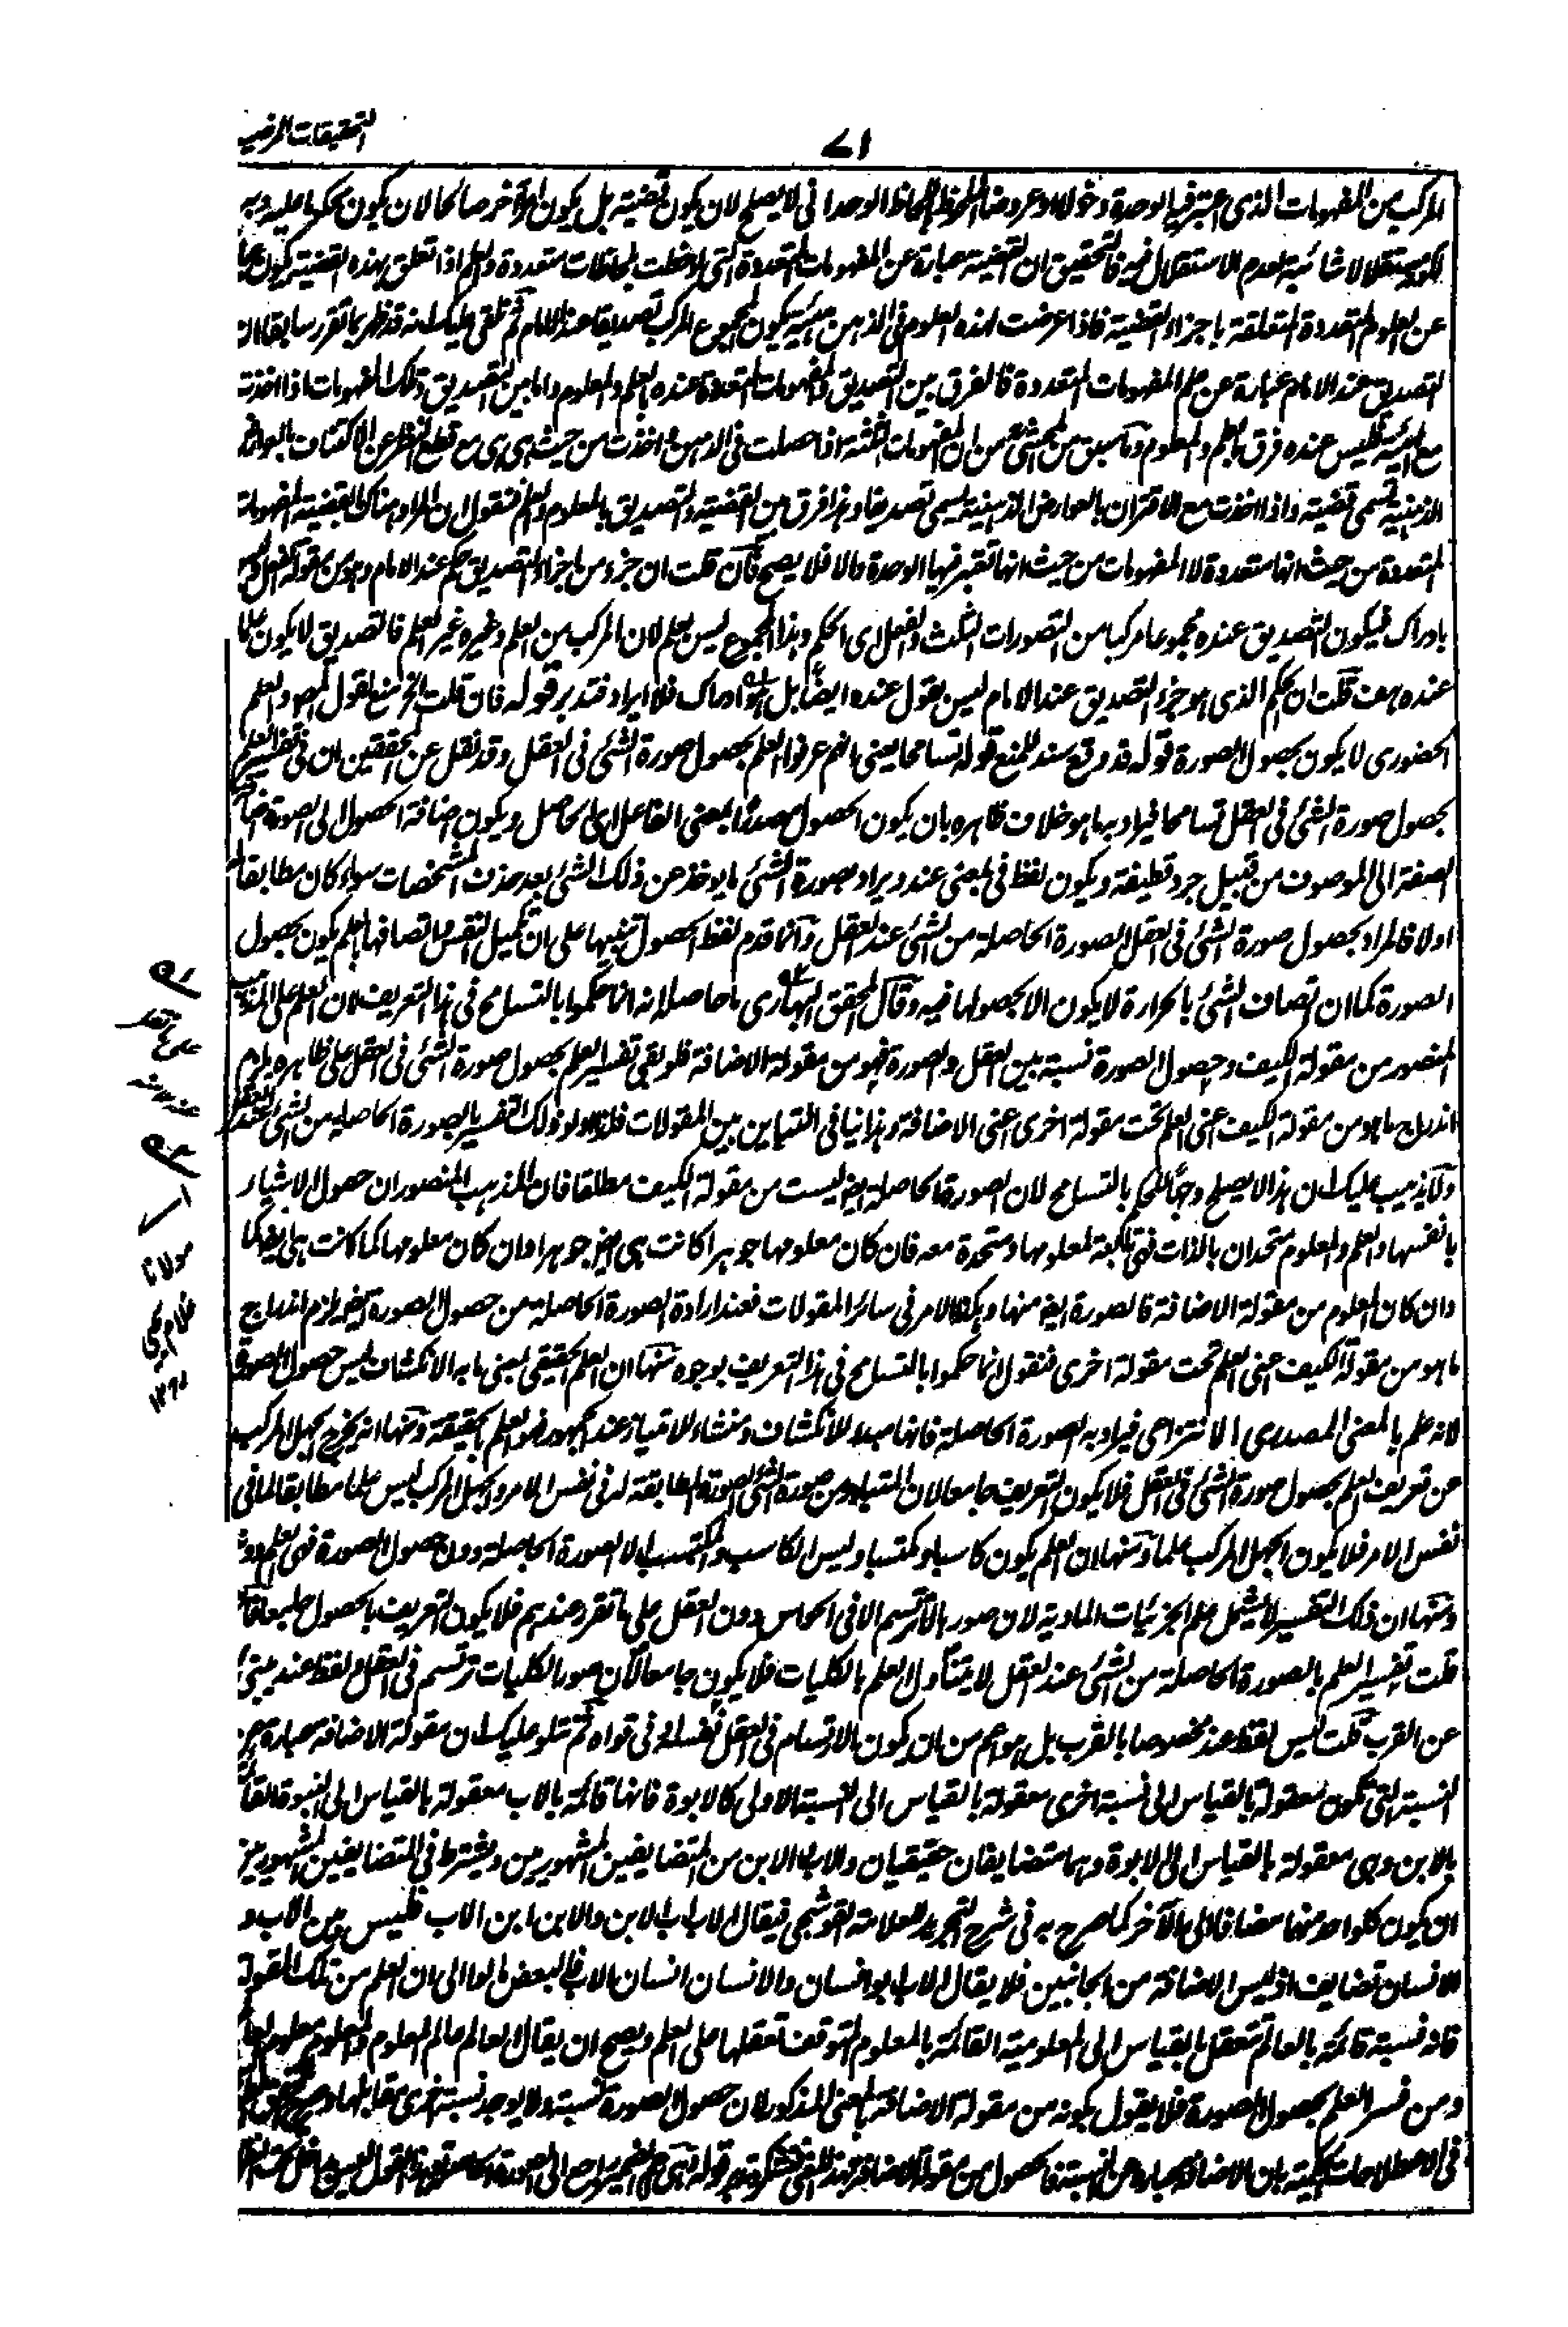 التحقيقات المرضيه
٧١
المركب من المفهومات الذى اعتبر فيها الوحدة دخولا او عروضا الملحوظ باللحاظ الوحدانى لا يصلح لان يكون قضيته بل يكون امرا آخر صالحا لان يكون محكوما عليه وبه
لكونه مستقلا لا شائبة لعدم الاستقلال فيه فالتحقيق ان القضية عبارة عن المفهومات المتعددة التى لوحظت بلحاظات متعددة والعلم اذا تعلق بهذه القضية يكون
عن العلوم المتعددة المتعلقة باجزاء القضية فاذا عرضت لهذه العلوم فى الذهن هيئة يكون المجموع المركب تصديقا عند الامام ثم تلقى عليك انه قد ظهر بما تقرر سابقا ان
التصديق عند الامام عبارة عن علم المفهومات المتعددة فالفرق بين التصديق والمفهومات المتعددة عنده بالعلم والمعلوم واما بين التصديق وتلك المفهومات اذا اخذت
مع الهيئة فليس عنده فرق بالعلم والمعلوم وما سبق من المحشى من ان المفهومات الثلثة اذا حصلت فى الذهن واخذت من حيث هى هى مع قطع النظر عن الاكتناف بالعوارض
الذهنية تسمى قضية واذا اخذت مع الاقتران بالعوارض الذهنية يسمى تصديقا وهذا فرق من القضية والتصديق بالمعلوم والعلم فنقول ان المراد هناك بالقضية المفهومات
المتعددة من حيث انها متعددة لا المفهومات من حيث انها تعتبر فيها الوحدة والا فلا يصح فان قلت ان جزء من اجزاء التصديق حكم عند الامام وهو من مقولة الفعل وليس
بادراك فيكون التصديق عنده مجموعا مركبا من التصورات الثلث والفعل اى الحكم وهذا المجموع ليس بعلم لان المركب من العلم وغيره غير العلم فالتصديق لا يكون علما
عنده هف قلت ان الحكم الذى هو جزء التصديق عند الامام ليس بفعل عنده ايضا بل هو ادراك فلا ايراد فتدبر قوله فان قلت الخ منع لقول المص والعلم
الحضورى لا يكون بحصول الصورة قوله قد وقع سند للمنع قوله تسامحا يعنى انهم عرفوا العلم بحصول صورة الشئ فى العقل وقد نقل عن المحققين ان فى تفسير العلم
بحصول صورة الشئ فى العقل تسامحا فيراد بها هو خلاف ظاهره بان يكون الحصول مصدرا بمعنى الفاعل اى الحاصل ويكون اضافة الحصول الى الصورة اضافة
الصفة الى الموصوف من قبيل جرد قطيفة ويكون لفظ فى بمعنى عند ويراد بصورة الشئ ما يوخذ من ذلك الشئ بعد حذف المشخصات سواء كان مطابقا له
اولا فالمراد بحصول صورة الشئ فى العقل الصورة الحاصلة من الشئ عند العقل وانما قدم لفظ الحصول تنبيها على ان تكميل النفس واتصافها بالعلم يكون بحصول
الصورة كما ان اتصاف الشئ بالحرارة لا يكون الا بحصولها فيه وقال المحقق البهارى ما حاصله انه انما حكموا بالتسامح فى هذا التعريف لان العلم على المذهب
المنصور من مقولة الكيف وحصول الصورة نسبة بين العقل والصورة فهو من مقولة الاضافة فلو بقى تفسير العلم بحصول صورة الشئ فى العقل على ظاهره يلزم
اندراج ما هو من مقولة الكيف اعنى العلم تحت مقولة اخرى اعنى الاضافة وهذا ينافى التباين بين المقولات فلذا اولوا ذلك التفسير بالصورة الحاصلة من الشئ عند العقل
ولا يذهب عليك ان هذا لا يصلح وجها للحكم بالتسامح لان الصورة الحاصلة ايضا ليست من مقولة الكيف مطلقا فان المذهب المنصور ان حصول الاشياء
بانفسها والعلم والمعلوم متحدان بالذات فهى تابعة لمعلومها ومتحدة معه فان كان معلومها جوهرا كانت هى ايضا جوهرا وان كان معلومها كما كانت هى ايضا كما
وان كان المعلوم من مقولة الاضافة فالصورة ايضا منها وهكذا الامر فى سائر المقولات فعند ارادة الصورة الحاصلة من حصول الصورة ايضا يلزم اندراج
ما هو من مقولة الكيف اعنى العلم تحت مقولة اخرى فنقول انما حكموا بالتسامح فى هذا التعريف بوجوه منها ان العلم الحقيقى بمعنى ما به الانكشاف ليس حصول الصورة
لانه علم بالمعنى المصدرى الانتزاعى فيراد به الصورة الحاصلة فانها مبدء للانكشاف ومنشاء للامتياز عند الجمهور فهو العلم بالحقيقة ومنها انه يخرج الجهل المركب
عن تعريف العلم بحصول صورة الشئ فى العقل فلا يكون التعريف جامعا لان المتبادر من صورة الشئ الصورة المطابقة له فى نفس الامر والجهل المركب ليس علما مطابقا لما فى
نفس الامر فلا يكون الجهل المركب علما ومنها ان العلم يكون كاسبا ومكتسبا وليس الكاسب والمكتسب الا الصورة الحاصلة دون حصول الصورة فهى العلم دونه
ومنها ان ذلك التفسير لا يشمل علم الجزئيات المادية لان صورها لا ترتسم الا فى الحواس دون العقل على ما تقرر عندهم فلا يكون التعريف بالحصول جامعا فان
قلت تفسير العلم بالصورة الحاصلة من الشئ عند العقل لا يتناول العلم بالكليات فلا يكون جامعا لان صور الكليات ترتسم فى العقل ولفظ عند ينبئ
عن القرب قلت ليس لفظ عند مخصوصا بالقرب بل هو اعم من ان يكون بالارتسام فى العقل نفسه او فى قواه ثم نتلو عليك ان مقولة الاضافة عبارة عن
النسبة التى تكون معقولة بالقياس الى نسبة اخرى معقولة بالقياس الى النسبة الاولى كالابوة فانها قائمة بالاب معقولة بالقياس الى البنوة القائمة
بالابن وهى معقولة بالقياس الى الابوة وهما متضايفان حقيقيان والاب والابن من المتضايفين المشهوريين ويشترط فى المتضايفين المشهوريين
ان يكون كل واحد منهما مضافا الى الآخر كما صرح به فى شرح التجريد للعلامة القوشجى فيقال الاب اب الابن والابن ابن الاب فليس بين الاب و
الانسان تضايف اذ ليس الاضافة من الجانبين فلا يقال الاب ابو انسان والانسان انسان الاب فالبعض مالوا الى ان العلم من تلك المقولة
فانه نسبة قائمة بالعالم تتعقل بالقياس الى المعلومية القائمة بالمعلوم المتوقف تعقلها على العلم ويصح ان يقال العالم عالم المعلوم والمعلوم معلوم العالم
ومن فسر العلم بحصول الصورة فلا يقول بكونه من مقولة الاضافة بالمعنى المذكور لان حصول الصورة نسبة ولا يوجد نسبة اخرى مقابلها
فى الاصطلاحات بان الاضافة عبارة عن النسبة فالحصول من مقولة الاضافة بهذا المعنى
مولانا
غلام يحيى